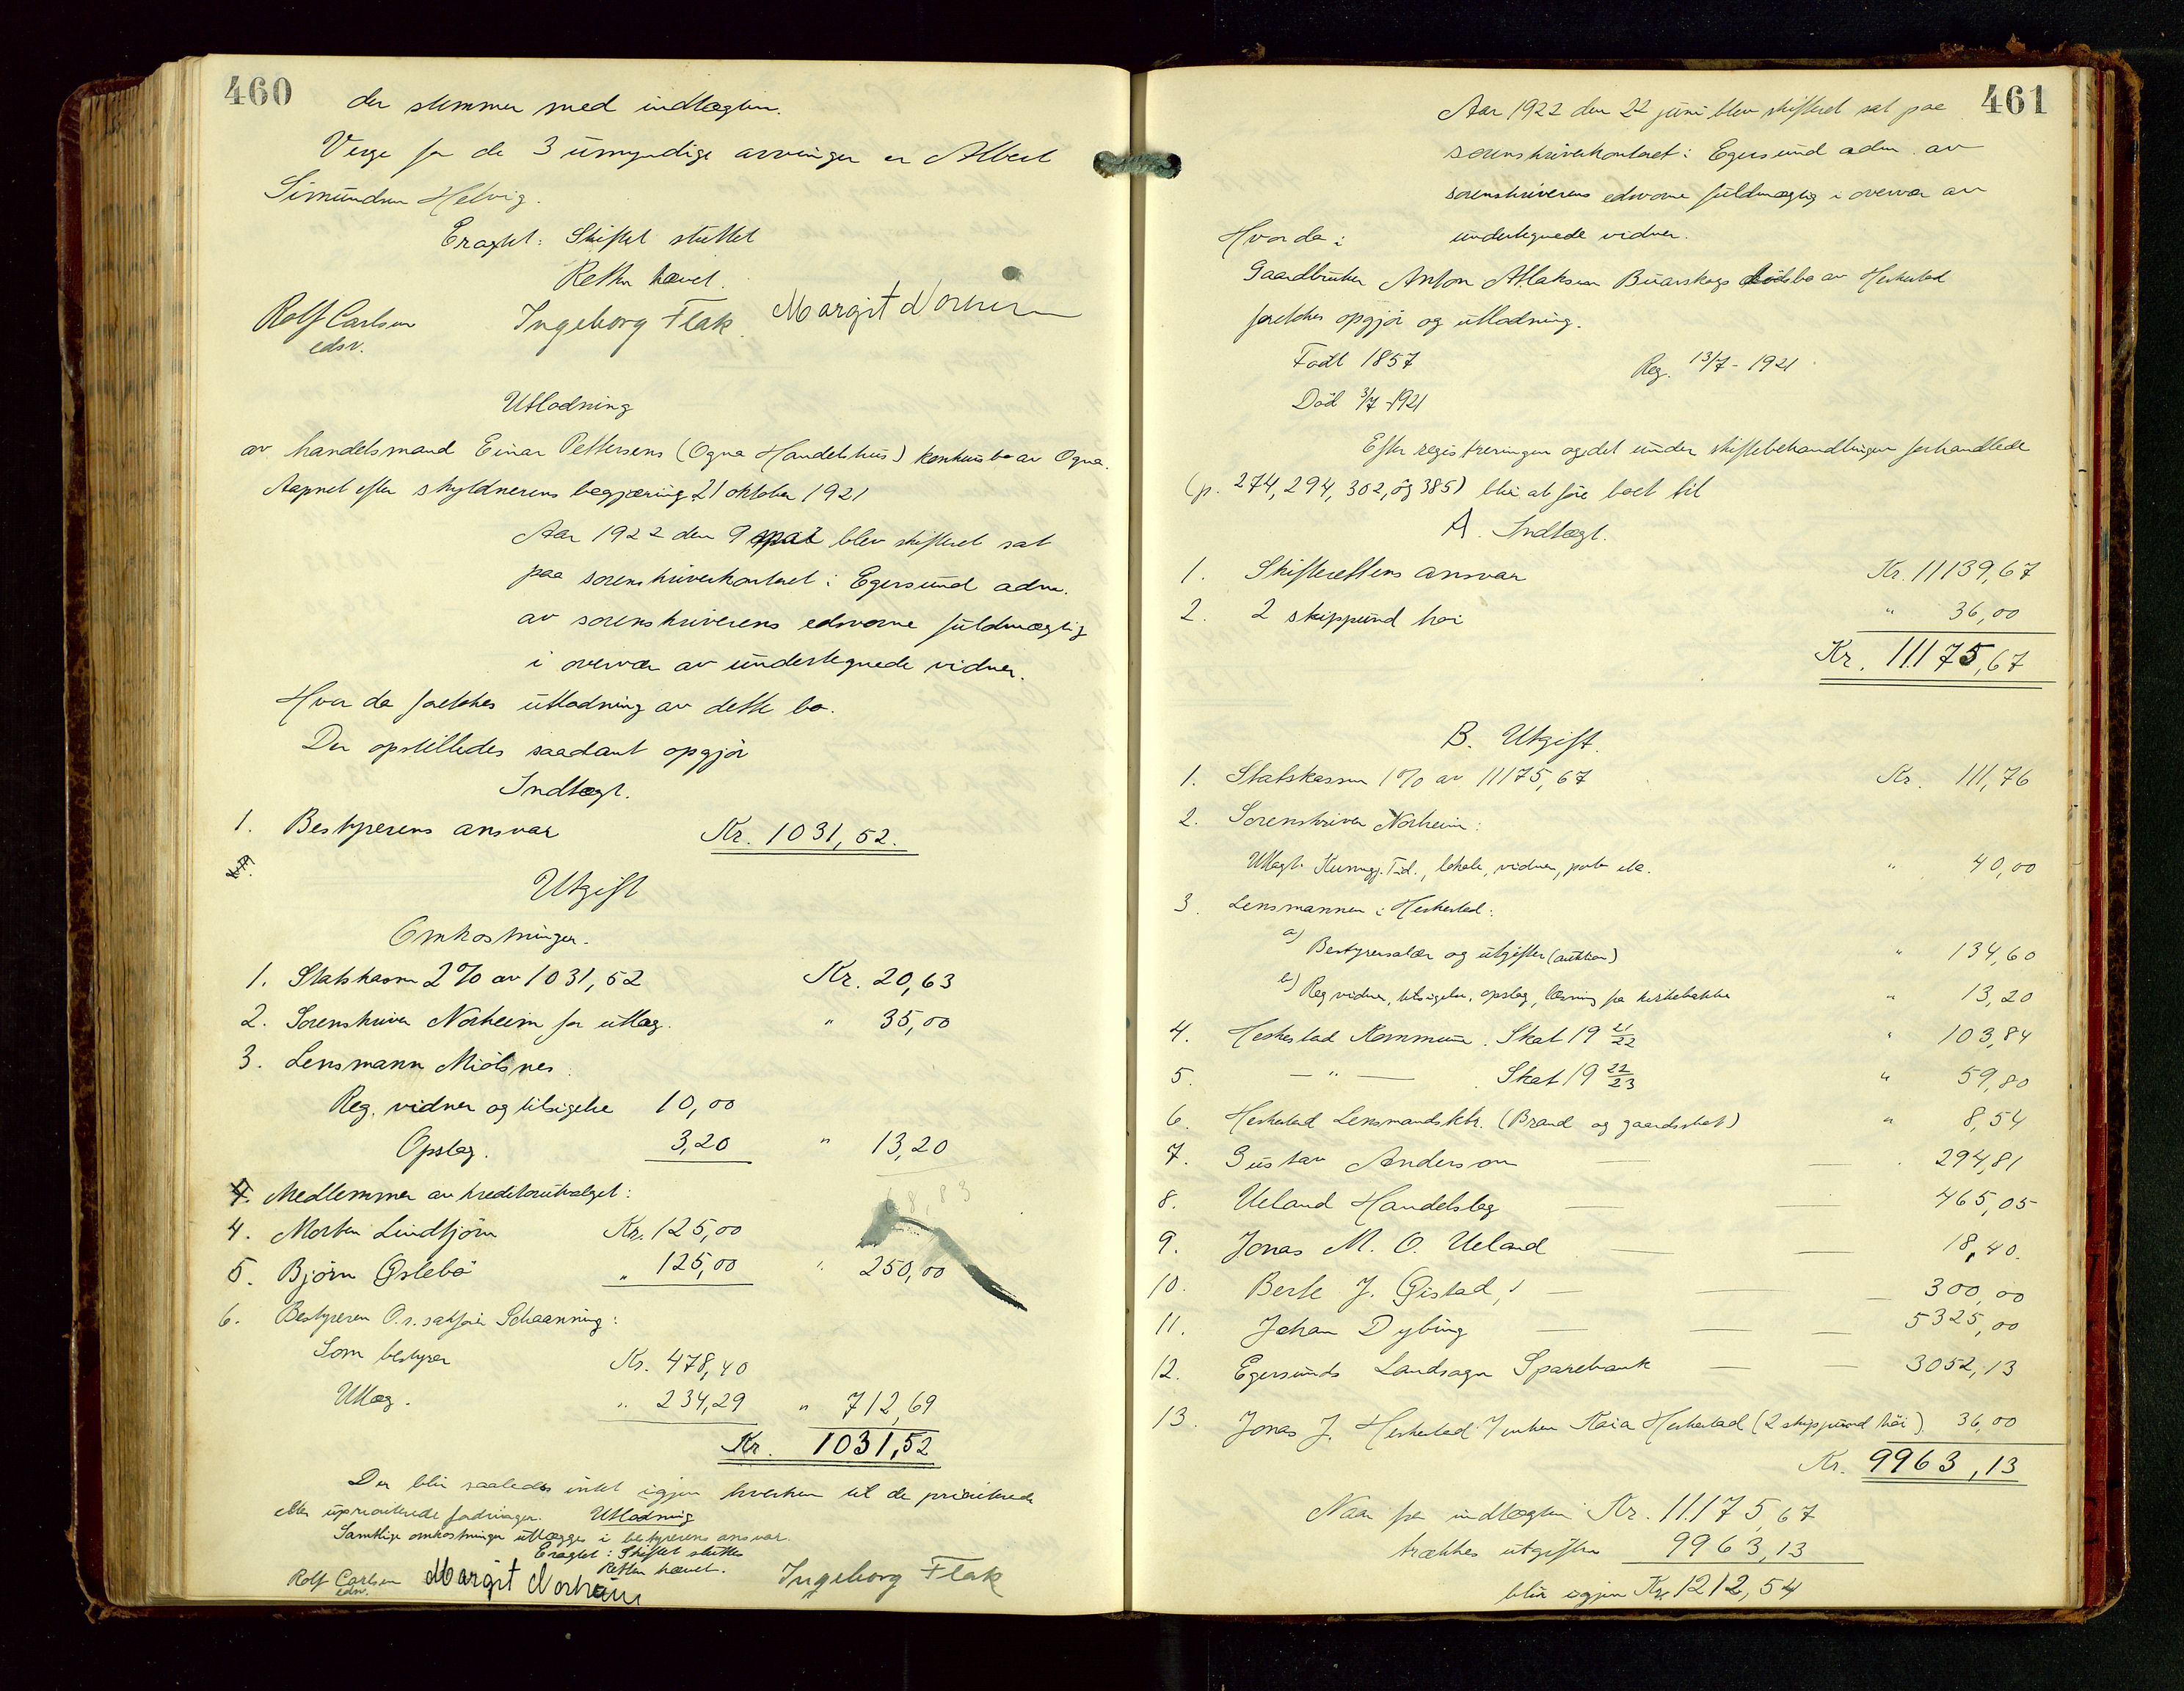 460
der stemmer med indtægten.
Verge for de 3 umyndige arvinger er Albert
Simundsen Helvig.
Eragtet: Skiftet sluttet
Retten hævet.
Rolf Carlsen
edsv.
Ingeborg Flak.
Margit Norheim
Utlodning
av handelsmand Einar Pettersens (Ogna Handelshus) konkursbo av Ogna.
Aapnet efter skyldnerens begjæring 21 oktober 1921
Aar 1922 den 9 blev skifteret sat
paa sorenskriverkontoret i Egersund adm.
av sorenskriverens edsvorne fuldmægtig
i overvær av undertegnede vidner.
Hvor da foretokes utlodning av dette bo.
Der opstilledes saadant opgjør
Indtægt.
1. Bestyrerens ansvar Kr. 1031,52.
Utgift
Omkostninger.
1. Statskassen 2% av 1031,52 Kr. 20,63
2. Sorenskriver Norheim for utlæg. " 35,00
3. Lensmann Miölsnes
Reg. vidner og tilsigelse 10,00
Opslag. 3,20 " 13,20
68,83
4. Medlemmer av kreditorutvalget:
4. Morten Lindtjørn Kr. 125,00
5. Bjørn Øslebø " 125,00 " 250,00
6. Bestyreren O.r. sakfører Schaanning:
Som bestyrer Kr. 478,40
Utlæg. " 234,29 " 712,69
Kr. 1031,52
Der blir saaledes intet igjen hverken til de prioriterede
eller uprioriterede fordringer. Utlodning
Samtlige omkostninger utlægges i bestyrerens ansvar.
Eragtet: Skiftet sluttes
Retten hævet.
Rolf Carlsen
edsv.
Margit Norheim
Ingeborg Flak
461
Aar 1922 den 22 juni blev skifteret sat paa
sorenskriverkontoret i Egersund adm. av
sorenskriverens edsvorne fuldmægtig i overvær av
undertegnede vidner.
Hvor da i
Gaardbruker Anton Atlaksen Buarskogs dødsbo av Heskestad
foretokes opgjør og utlodning.
Født 1857 Reg. 13/7 - 1921
Død 3/7 - 1921
Efter registreringen og det under skiftebehandlingen forhandlede
(p. 274, 294, 302, og 385) blir at føre boet til
A. Indtægt.
1. Skifterettens ansvar Kr. 11139,67
2. 2 skippund høi " 36,00
Kr. 11175,67
B. Utgift.
1. Statskassen 1% av 11175,67 Kr. 111,76
2. Sorenskriver Norheim:
Utlagt Kunngj. Tid., lokale, vidner, porto etc. " 40,00
3. Lensmannen i Heskestad:
a) Bestyrersalær og utgifter (auktion) " 134,60
b) Reg vidner, tilsigelse, opslag, læsning paa kirkebakke " 13,20
4. Heskestad Kommune. Skat 19 21/22 " 103,84
5. — " — Skat 19 22/23 " 59,80
6. Heskestad Lensmandsktr. (Brand og gaardsskat) " 8,54
7. Gustav Anderson — — 294,81
8. Ueland Handelslag — — 465,05
9. Jonas M. O. Ueland — — 18,40.
10. Berte J. Gistad, — — — 300,00
11. Johan Dybing — — — 5325,00
12. Egersunds Landsogns Sparebank — — 3052,13
13. Jonas J. Heskestad's enke Kaia Heskestad (2 skippund høi) 36,00
Kr. 9963,13
Naar fra indtægten Kr. 11175,67
trækkes utgiften 9963,13
blir igjen Kr. 1212,54